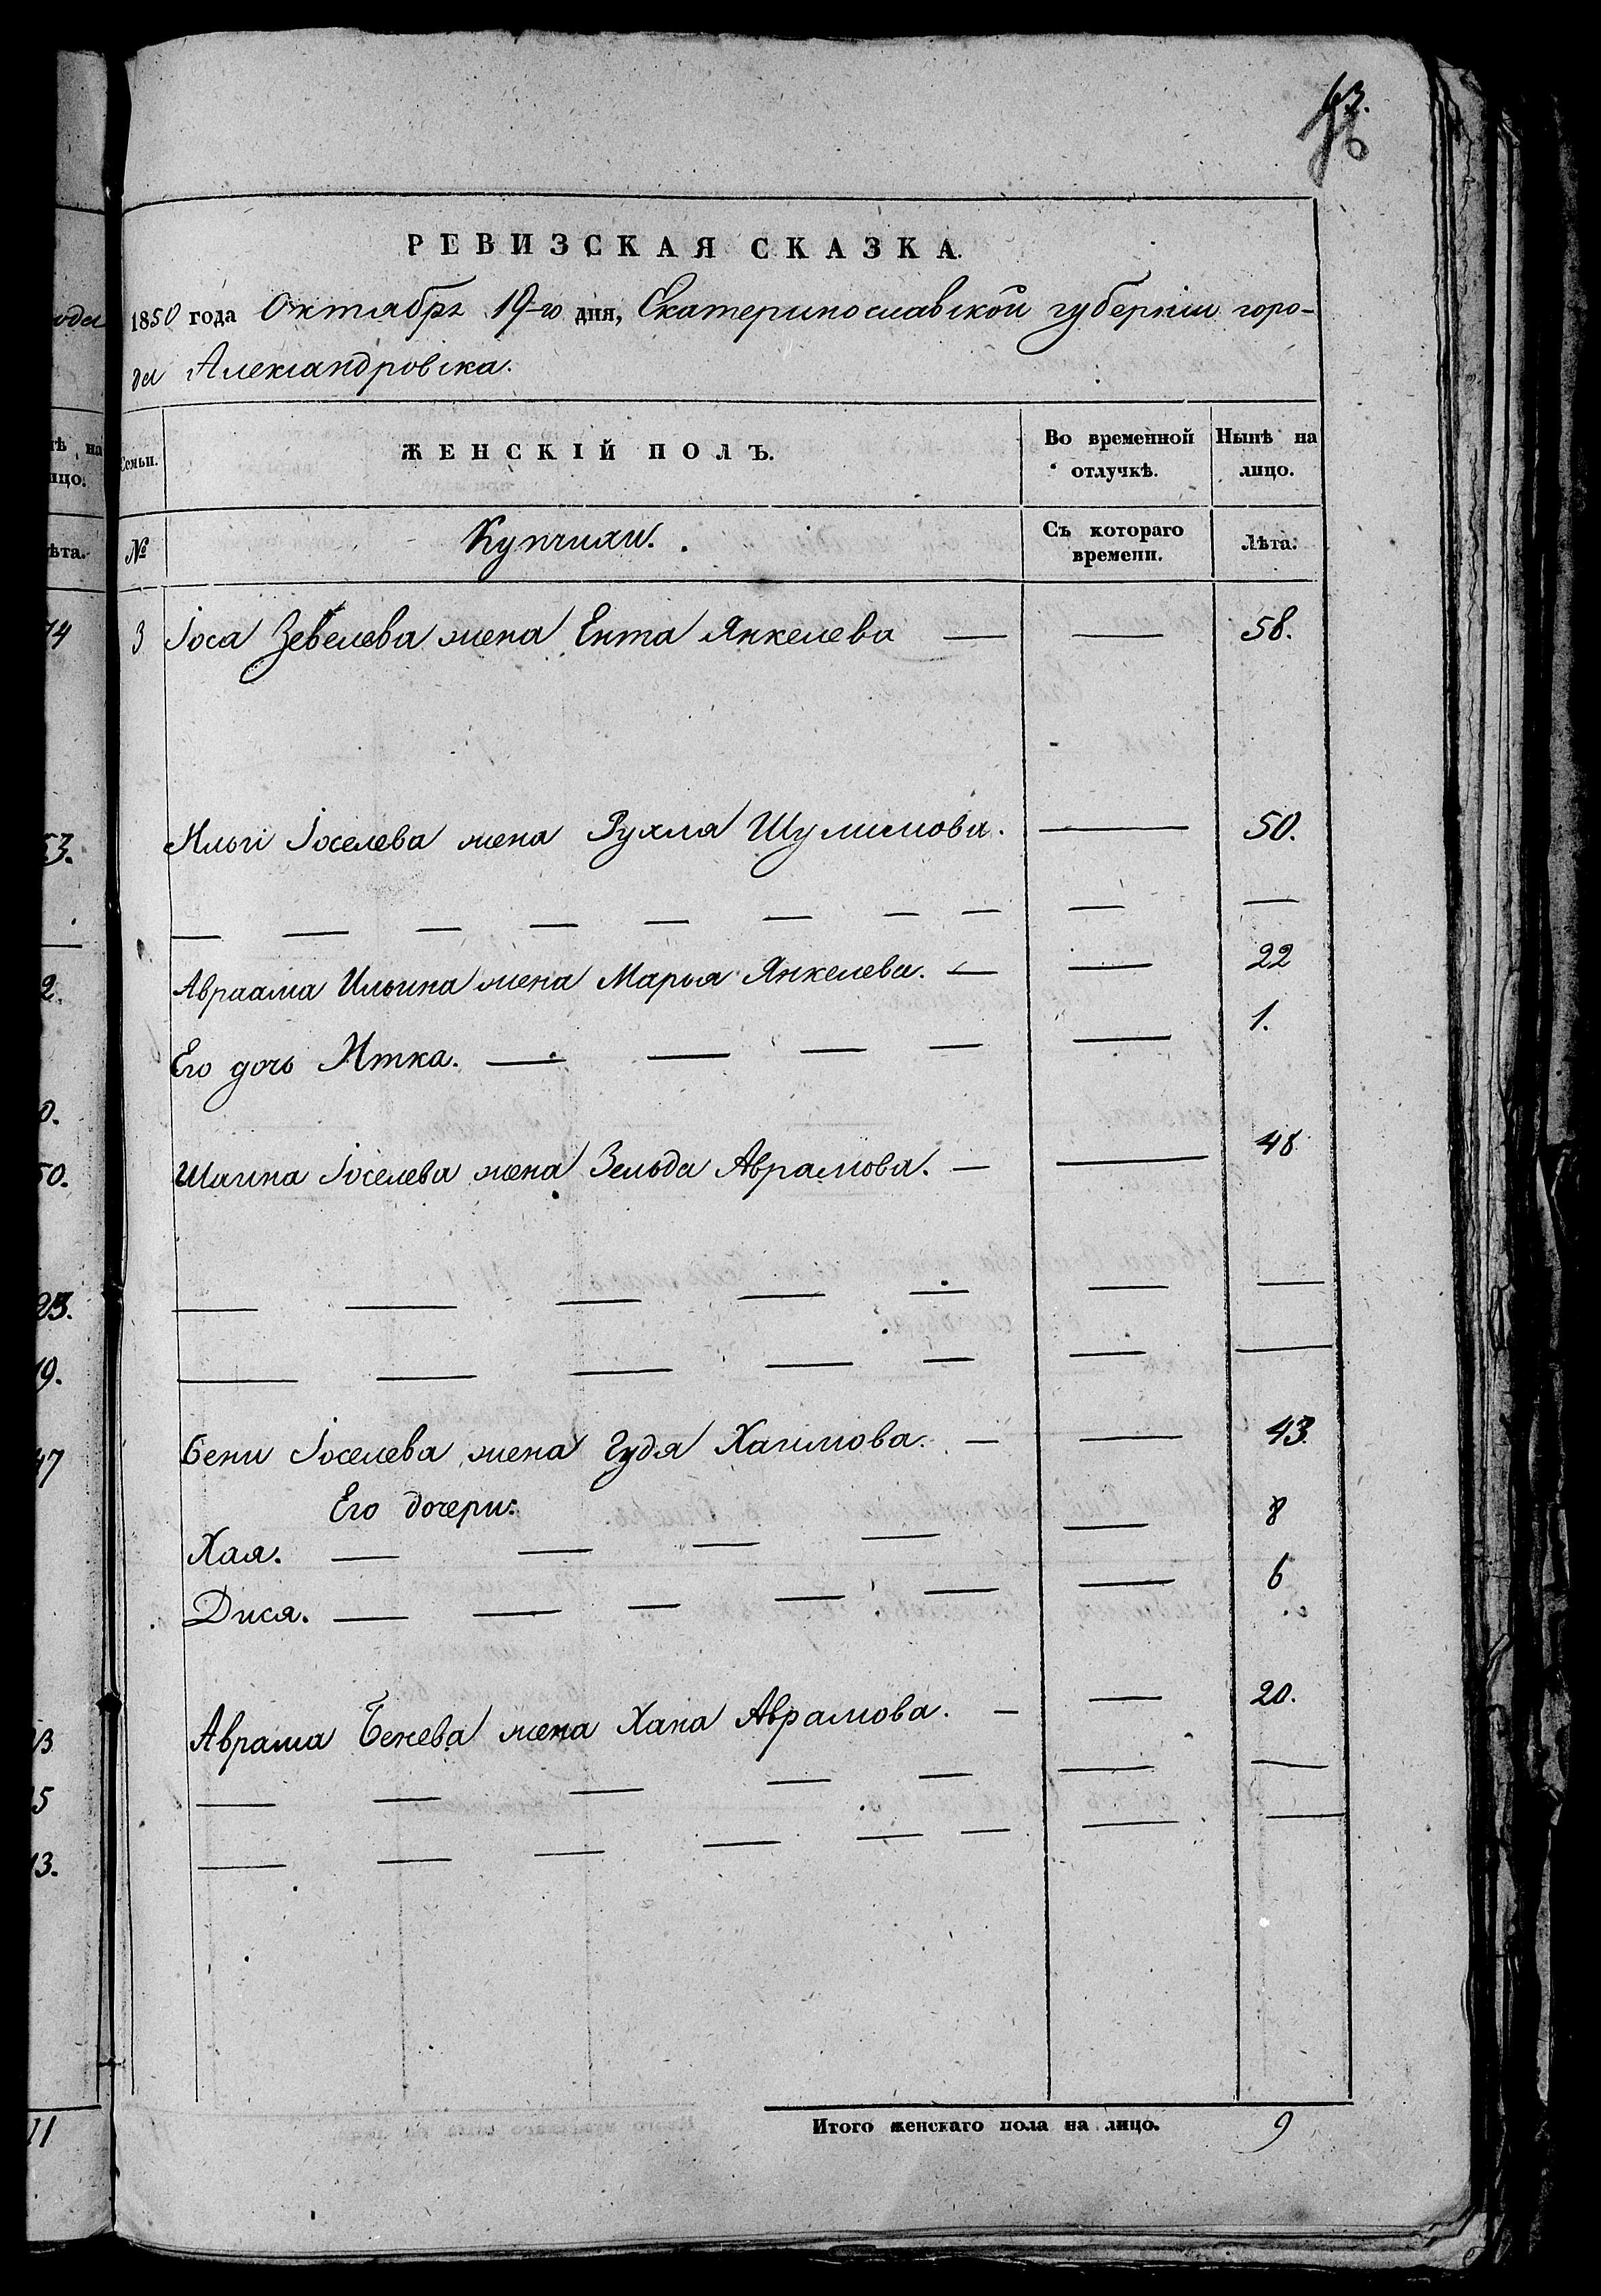 63.
РЕВИЗСКАЯ СКАЗКА.
1850 года Октября 19-го дня, Екатеринославской губерніи горо-
да Александровска.
Семьи. ЖЕНСКІЙ ПОЛЪ. Во временной отлучкѣ. Нынѣ на лицо.
№ Купчихи. Съ котораго времени. Лѣта.
3 Іоса Зевелева жена Ента Янкелева — — 58.
Ильи Іоселева жена Рухля Шулимова. — 50.
— — — — — — — — — —
Авраама Ильина жена Марья Янкелева. — — 22
Его дочь Итка. — — — — — 1.
Шаина Іоселева жена Зельда Аврамова. — — 48
— — — — — — —
— — — — — — —
Бени Іоселева жена Гудя Хаимова. — — 43.
Его дочери:
Хая. — — — — — 8
Дися. — — — — — — 6
Аврама Бенева жена Хана Аврамова. — — 20.
— — — — — — —
— — — — — — — —
Итого женскаго пола на лицо. 9
ода
тѣ на
ицо.
ѣта.
74
53.
2.
0.
50.
23.
19.
47
13
15
13.
11